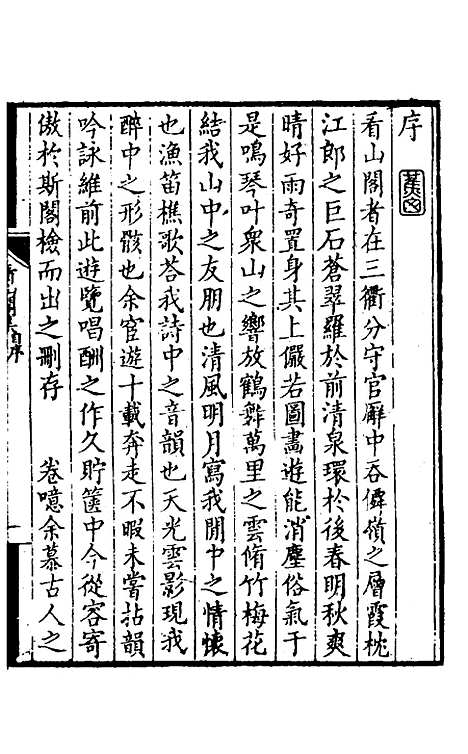 序
看山閣者在三衢分守官廨中吞僊嶺之層霞枕
江郎之巨石蒼翠羅於前清泉環於後春明秋爽
晴好雨奇置身其上儼若圖畫遊能消塵俗氣于
是鳴琴叶衆山之響放鶴舞萬里之雲脩竹梅花
結我山中之友朋也清風明月寫我閒中之情懷
也漁笛樵歌荅我詩中之音韻也天光雲影現我
醉中之形骸也余宦遊十載奔走不暇未嘗拈韻
吟詠維前此遊覽唱酬之作久貯篋中今從容寄
傲於斯閣檢而出之刪存　卷噫余慕古人之
序
一